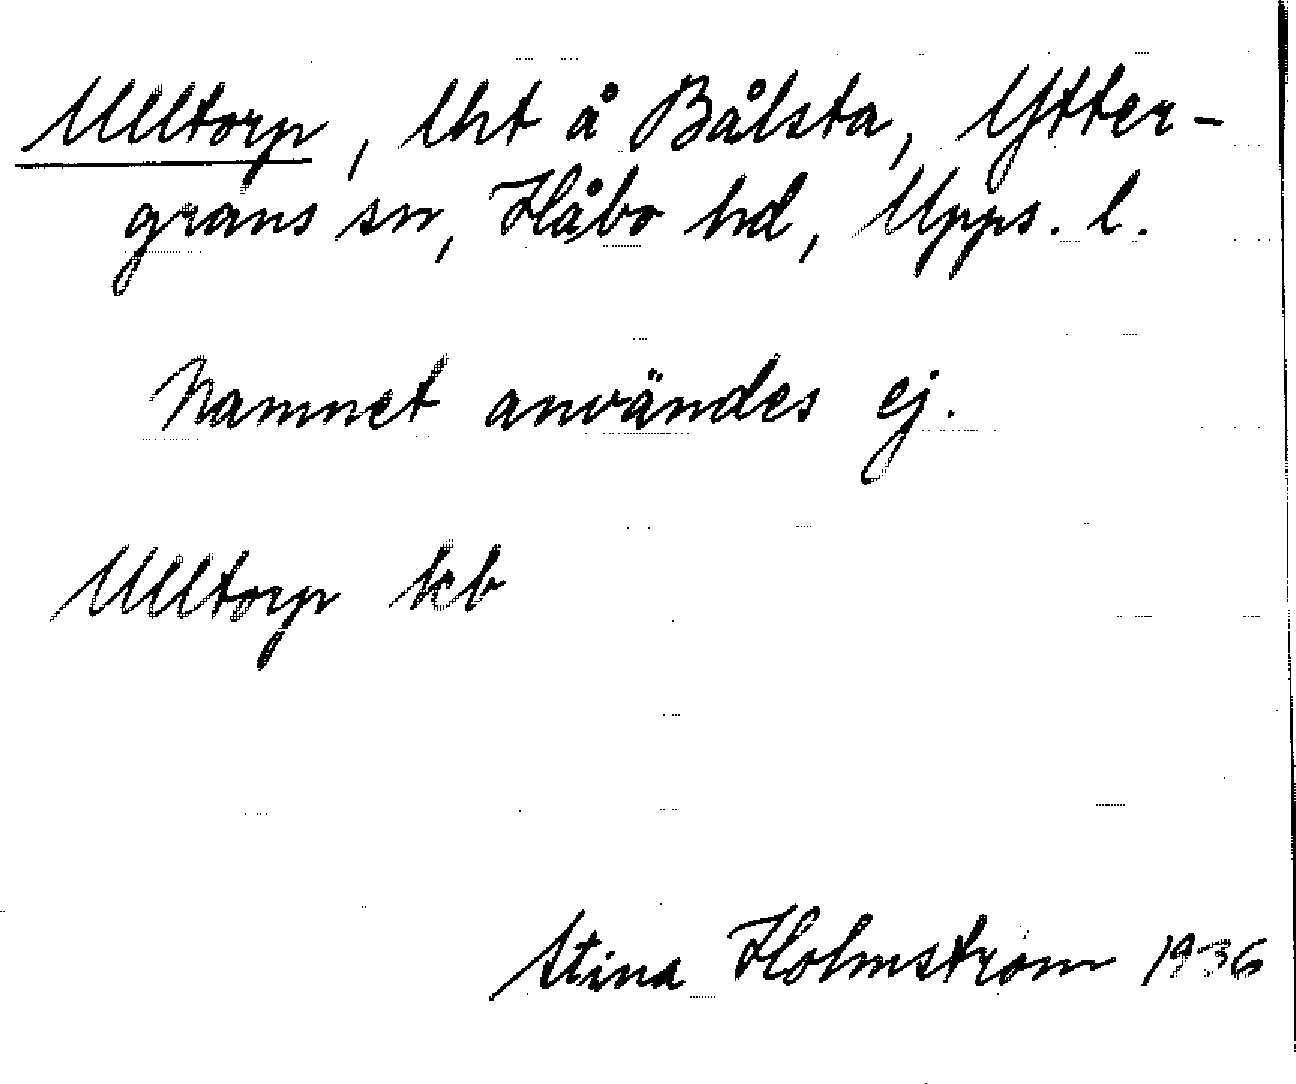 Ulltorp, lht å Bålsta, Ytter-
grans sn, Håbo hd, Upps. l.
Namnet användes ej.
Ulltorp kb
Stina Holmström 1936